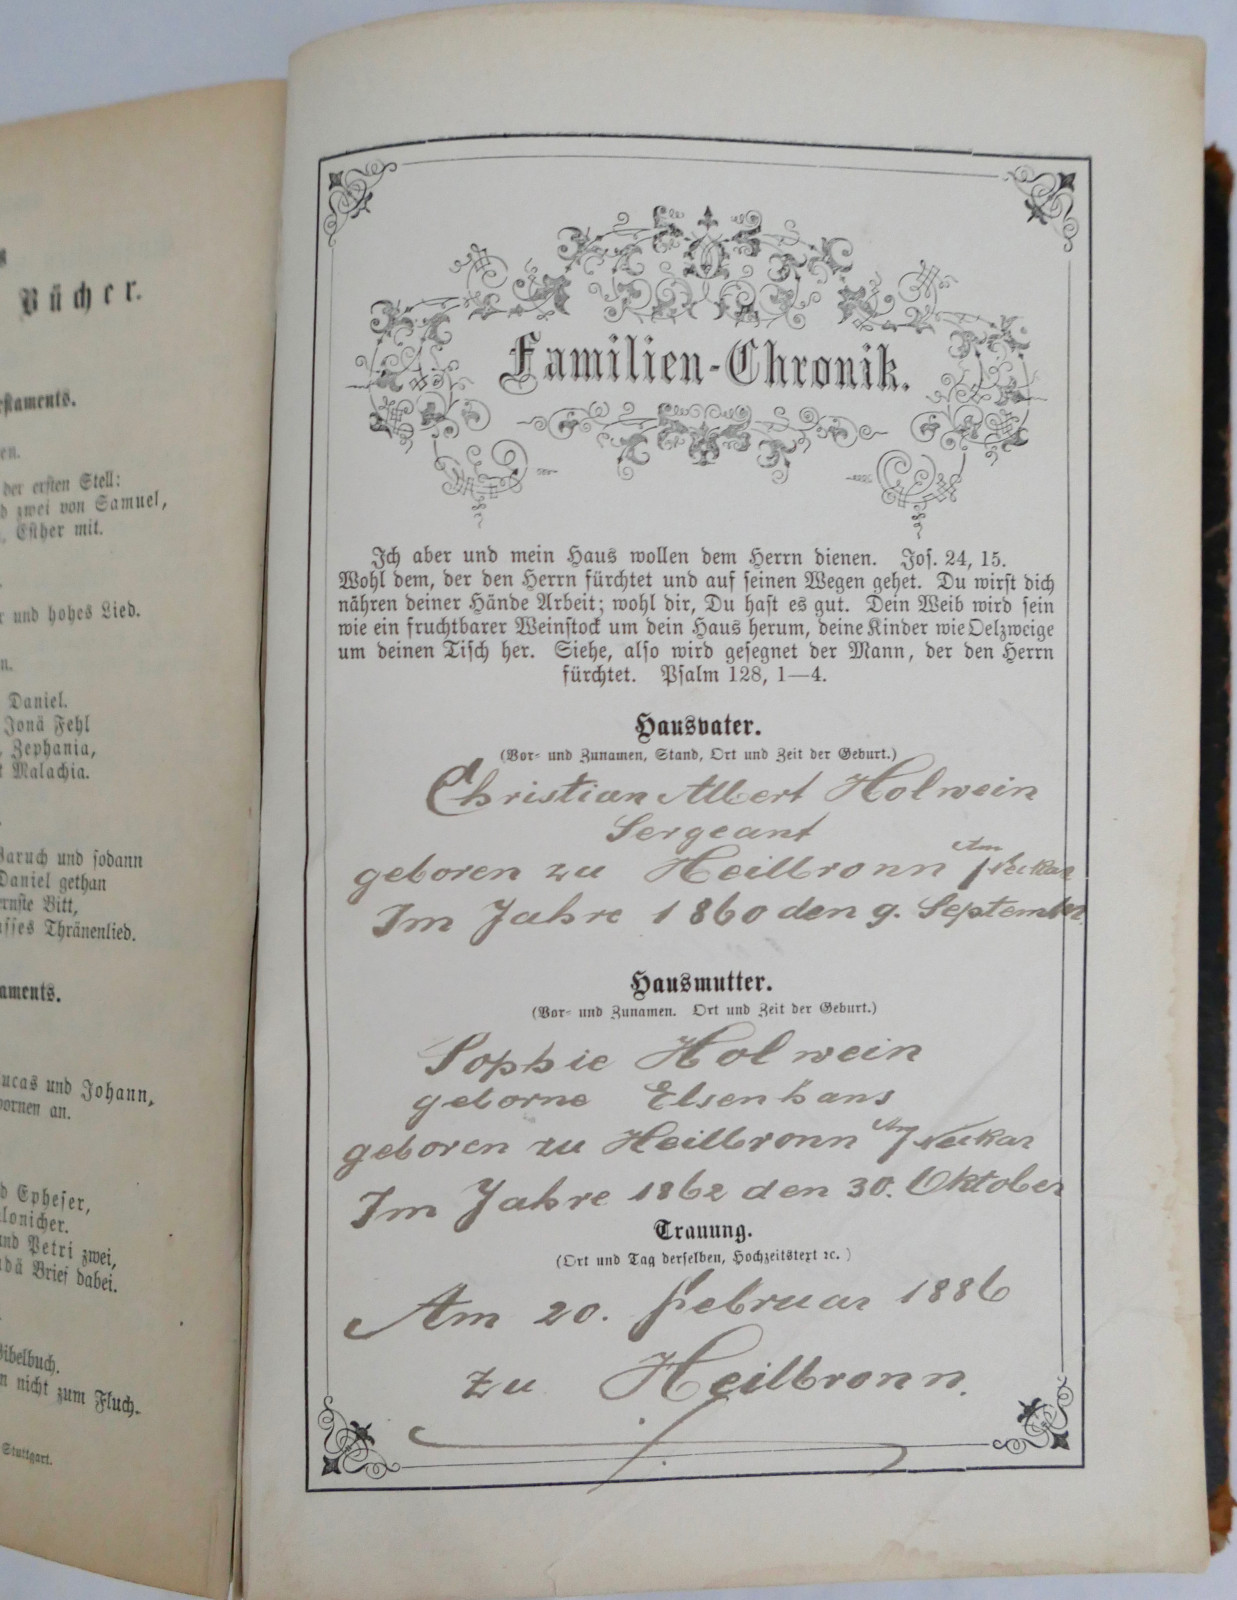 Bücher.
der ersten Stell:
zwei von Samuel,
Esther mit.
und hohes Lied.
Daniel.
Jonä Fehl
Zephania,
Malachia.
Baruch und sodann
Daniel gethan
ernste Bitt,
Thränenlied.
Lucas und Johann,
an.
Epheser,
und Petri zwei,
Brief dabei.
Bibelbuch.
nicht zum Fluch.
Stuttgart.
Familien-Chronik.
Ich aber und mein Haus wollen dem Herrn dienen. Jos. 24, 15.
Wohl dem, der den Herrn fürchtet und auf seinen Wegen gehet. Du wirst dich
nähren deiner Hände Arbeit; wohl dir, Du hast es gut. Dein Weib wird sein
wie ein fruchtbarer Weinstock um dein Haus herum, deine Kinder wie Oelzweige
um deinen Tisch her. Siehe, also wird gesegnet der Mann, der den Herrn
fürchtet. Psalm 128, 1—4.
Hausvater.
(Vor- und Zunamen, Stand, Ort und Zeit der Geburt.)
Christian Albert Holwein
Sergeant
geboren zu Heilbronn Am/Neckar
Im Jahre 1860 den 9. September.
Hausmutter.
(Vor- und Zunamen. Ort und Zeit der Geburt.)
Sophie Holwein
geborne Elsenhans
geboren zu Heilbronn Am/Neckar
Im Jahre 1862 den 30. Oktober
Trauung.
(Ort und Tag derselben, Hochzeitstext ꝛc.)
Am 20. Februar 1886
zu Heilbronn.